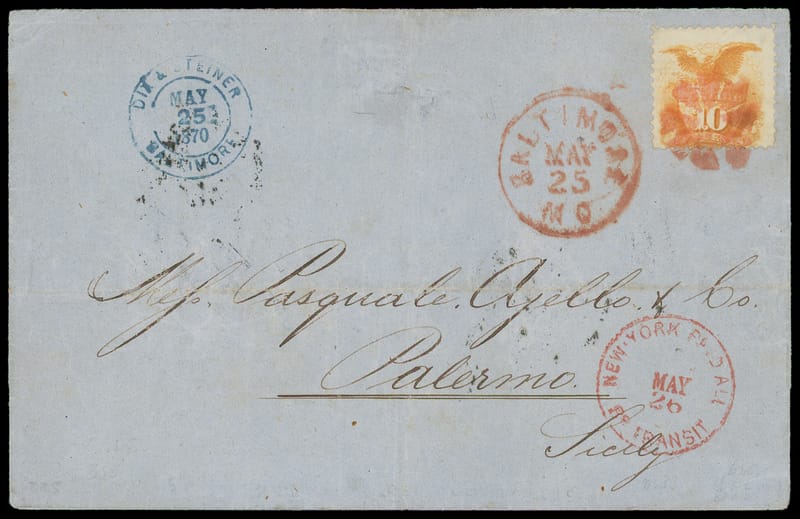 DIX & STEINER
MAY
25
1870
BALTIMORE
BALTIMORE
MAY
25
MD
10
Mess. Pasquale Ajello & Co.
Palermo.
Sicily
NEW-YORK PAID ALL
MAY
26
BR TRANSIT